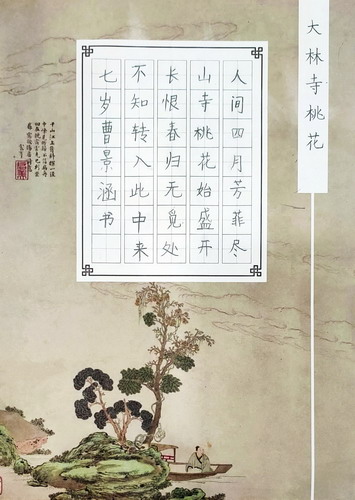 大林寺桃花
人间四月芳菲尽
山寺桃花始盛开
长恨春归无觅处
不知转入此中来
七岁曹景涵书